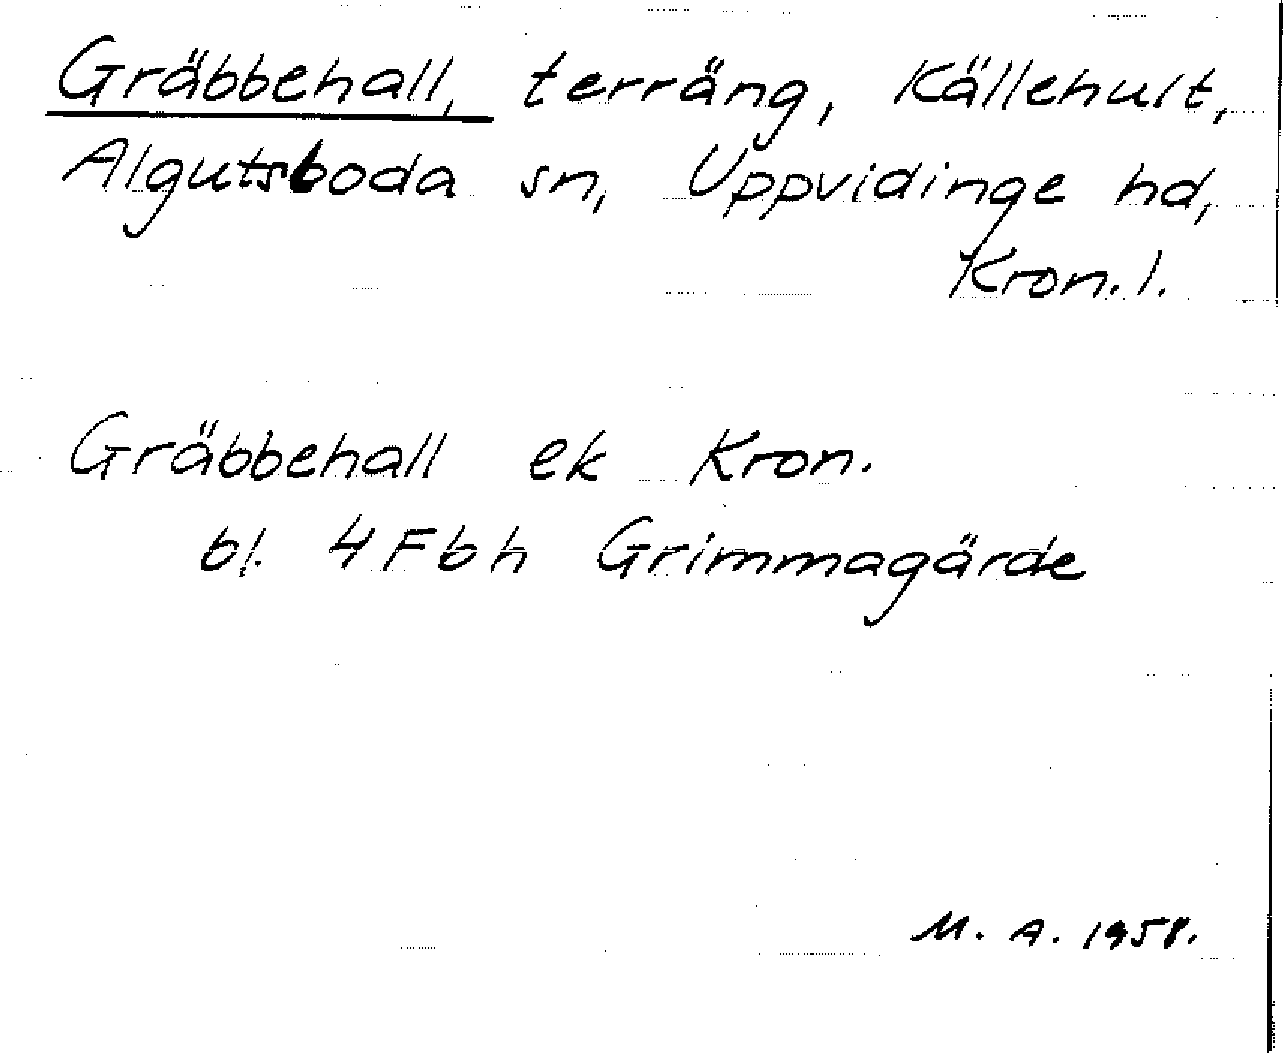 Gräbbehall, terräng, Källehult,
Algutsboda sn, Uppvidinge hd,
Kron. l.
Gräbbehall ek Kron.
bl. 4Fbh Grimmagärde
M. A. 1958.